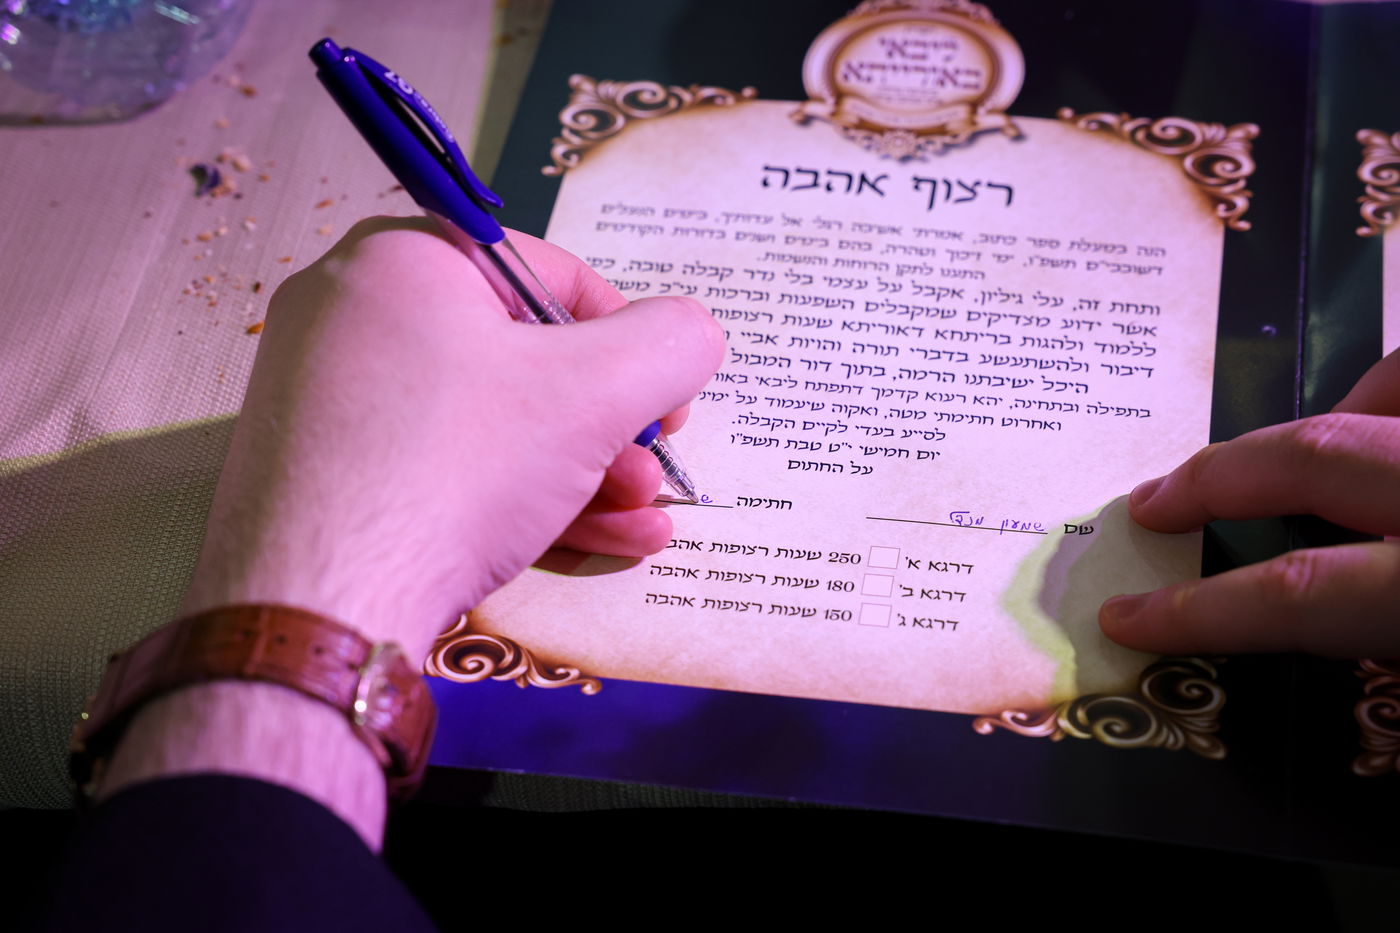 ליבאי
באורייתא
רצוף אהבה
הנה במעלת ספר כתוב, אמרתי אשיבה רגלי אל עדותיך, בימים הנעלים
דשובבי"ם תשפ"ו, ימי זיכוך וטהרה, בהם בימים ושנים בדורות הקודמים
התענו לתקן הרוחות והנשמות.
ותחת זה, עלי גיליון, אקבל על עצמי בלי נדר קבלה טובה, כפי
אשר ידוע מצדיקים שמקבלים השפעות וברכות ע"כ
ללמוד ולהגות בריתחא דאוריתא שעות רצופות
דיבור ולהשתעשע בדברי תורה והויות אביי
היכל ישיבתנו הרמה, בתוך דור המבול
בתפילה ובתחינה, יהא רעוא קדמך דתפתח ליבאי
ואחרוט חתימתי מטה, ואקוה שיעמוד על
לסייע בעדי לקיים הקבלה.
יום חמישי י"ט טבת תשפ"ו
על החתום
שם שמעון מנדל חתימה ש
דרגא א' 250 שעות רצופות
דרגא ב' 180 שעות רצופות אהבה
דרגא ג' 150 שעות רצופות אהבה